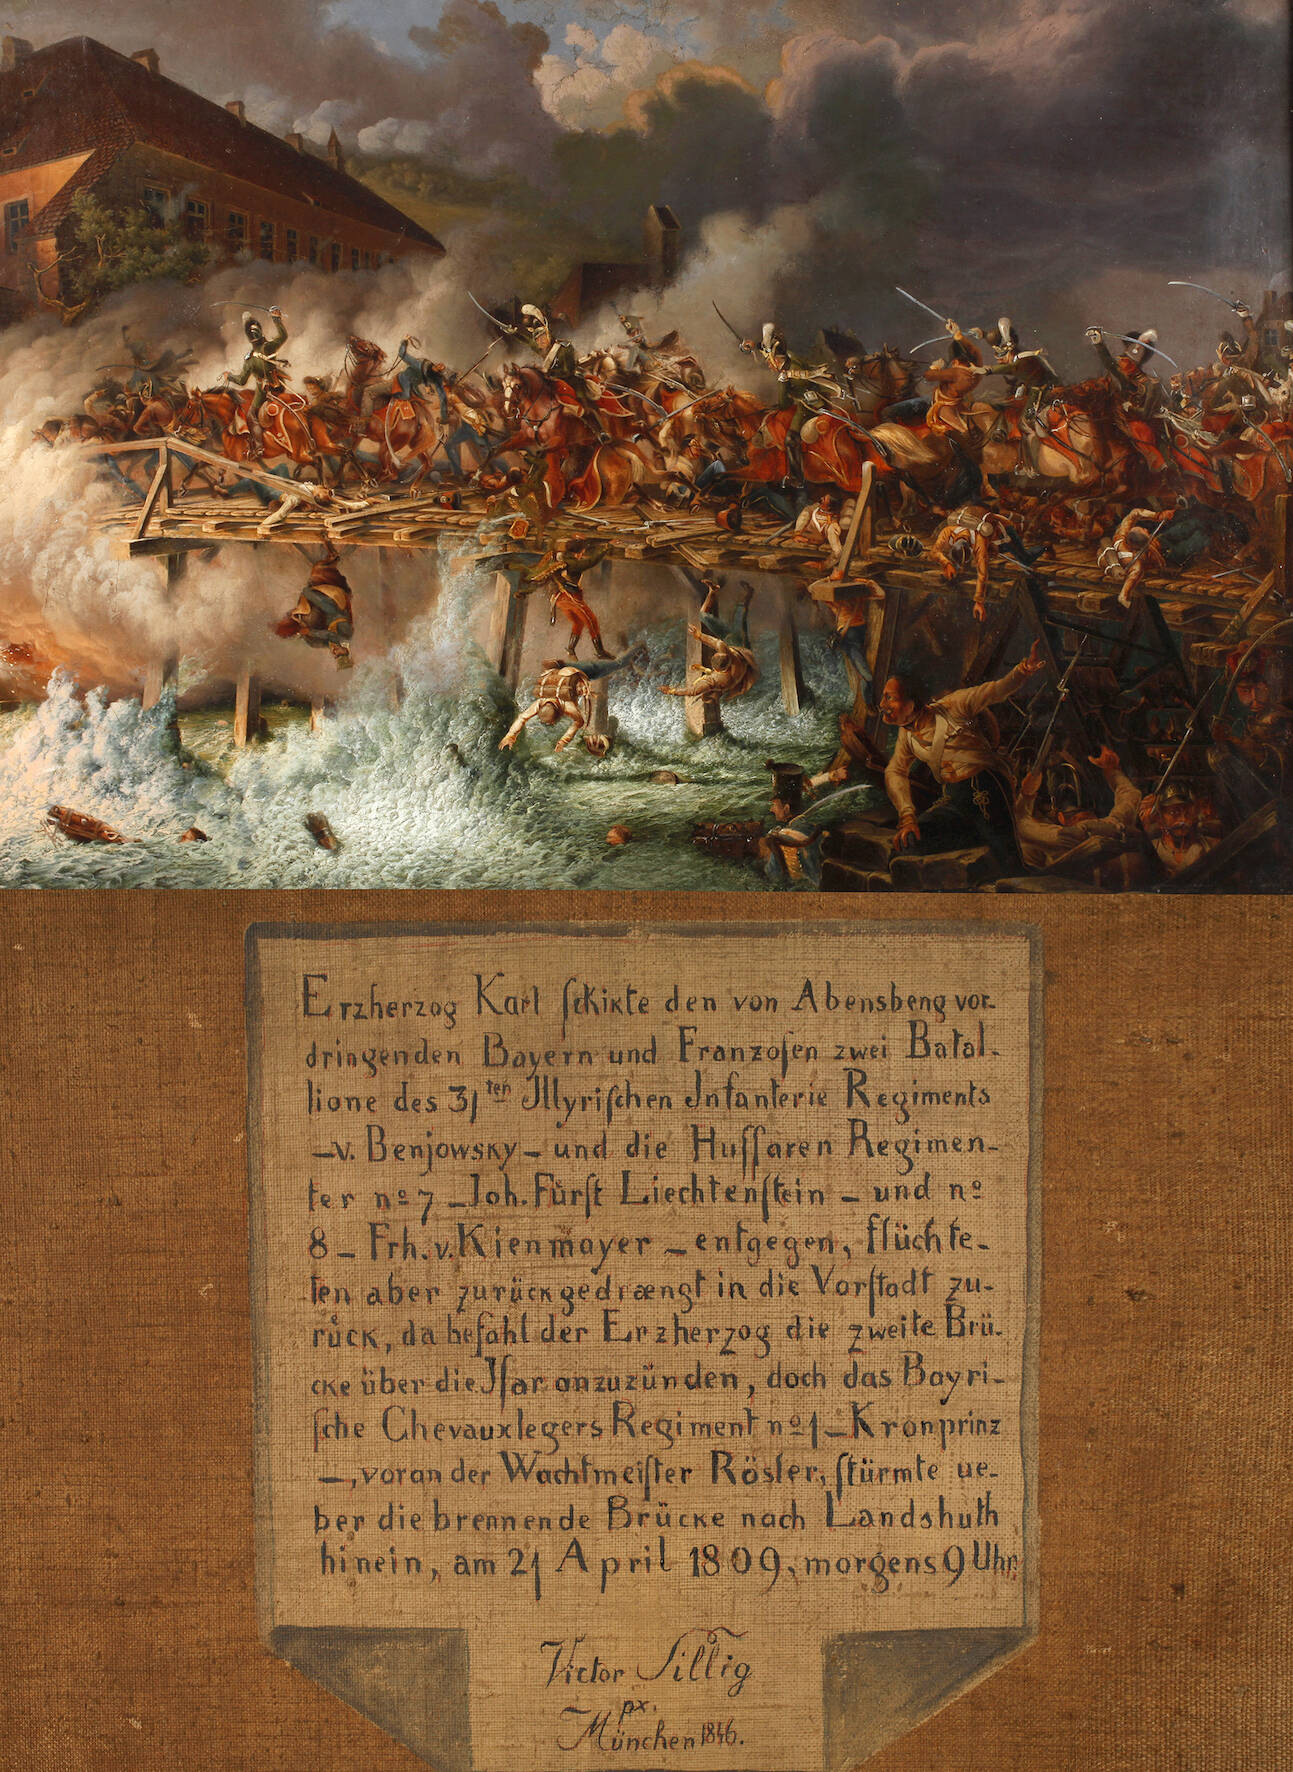 Erzherzog Karl ſchikte den von Abensbeng vor-
dringenden Bayern und Franzoſen zwei Batal-
lione des 31ten Jllyriſchen Jnfanterie Regiments
–v. Benjowsky– und die Huſſaren Regimen-
ter no 7 –Joh. Fürſt Liechtenſtein – und no
8 – Frh. v. Kienmayer – entgegen, flüchte-
ten aber zurückgedrængt in die Vorſtadt zu-
rück, da befahl der Erzherzog die zweite Brü-
cke über die Jſar anzuzünden, doch das Bayri-
ſche Chevauxlegers Regiment no 1 – Kronprinz
–, voran der Wachtmeiſter Rösler, ſtürmte ue-
ber die brennende Brücke nach Landshuth
hinein, am 21 April 1809, morgens 9 Uhr.
Victor Sillig
px.
München 1846.